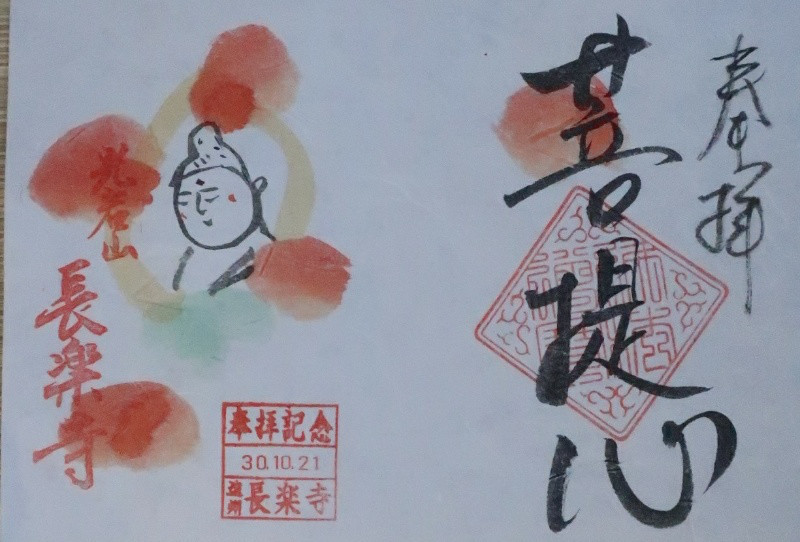 奉拝
菩提心
乳岩山
長楽寺
奉拝記念
30.10.21
遠州
長楽寺